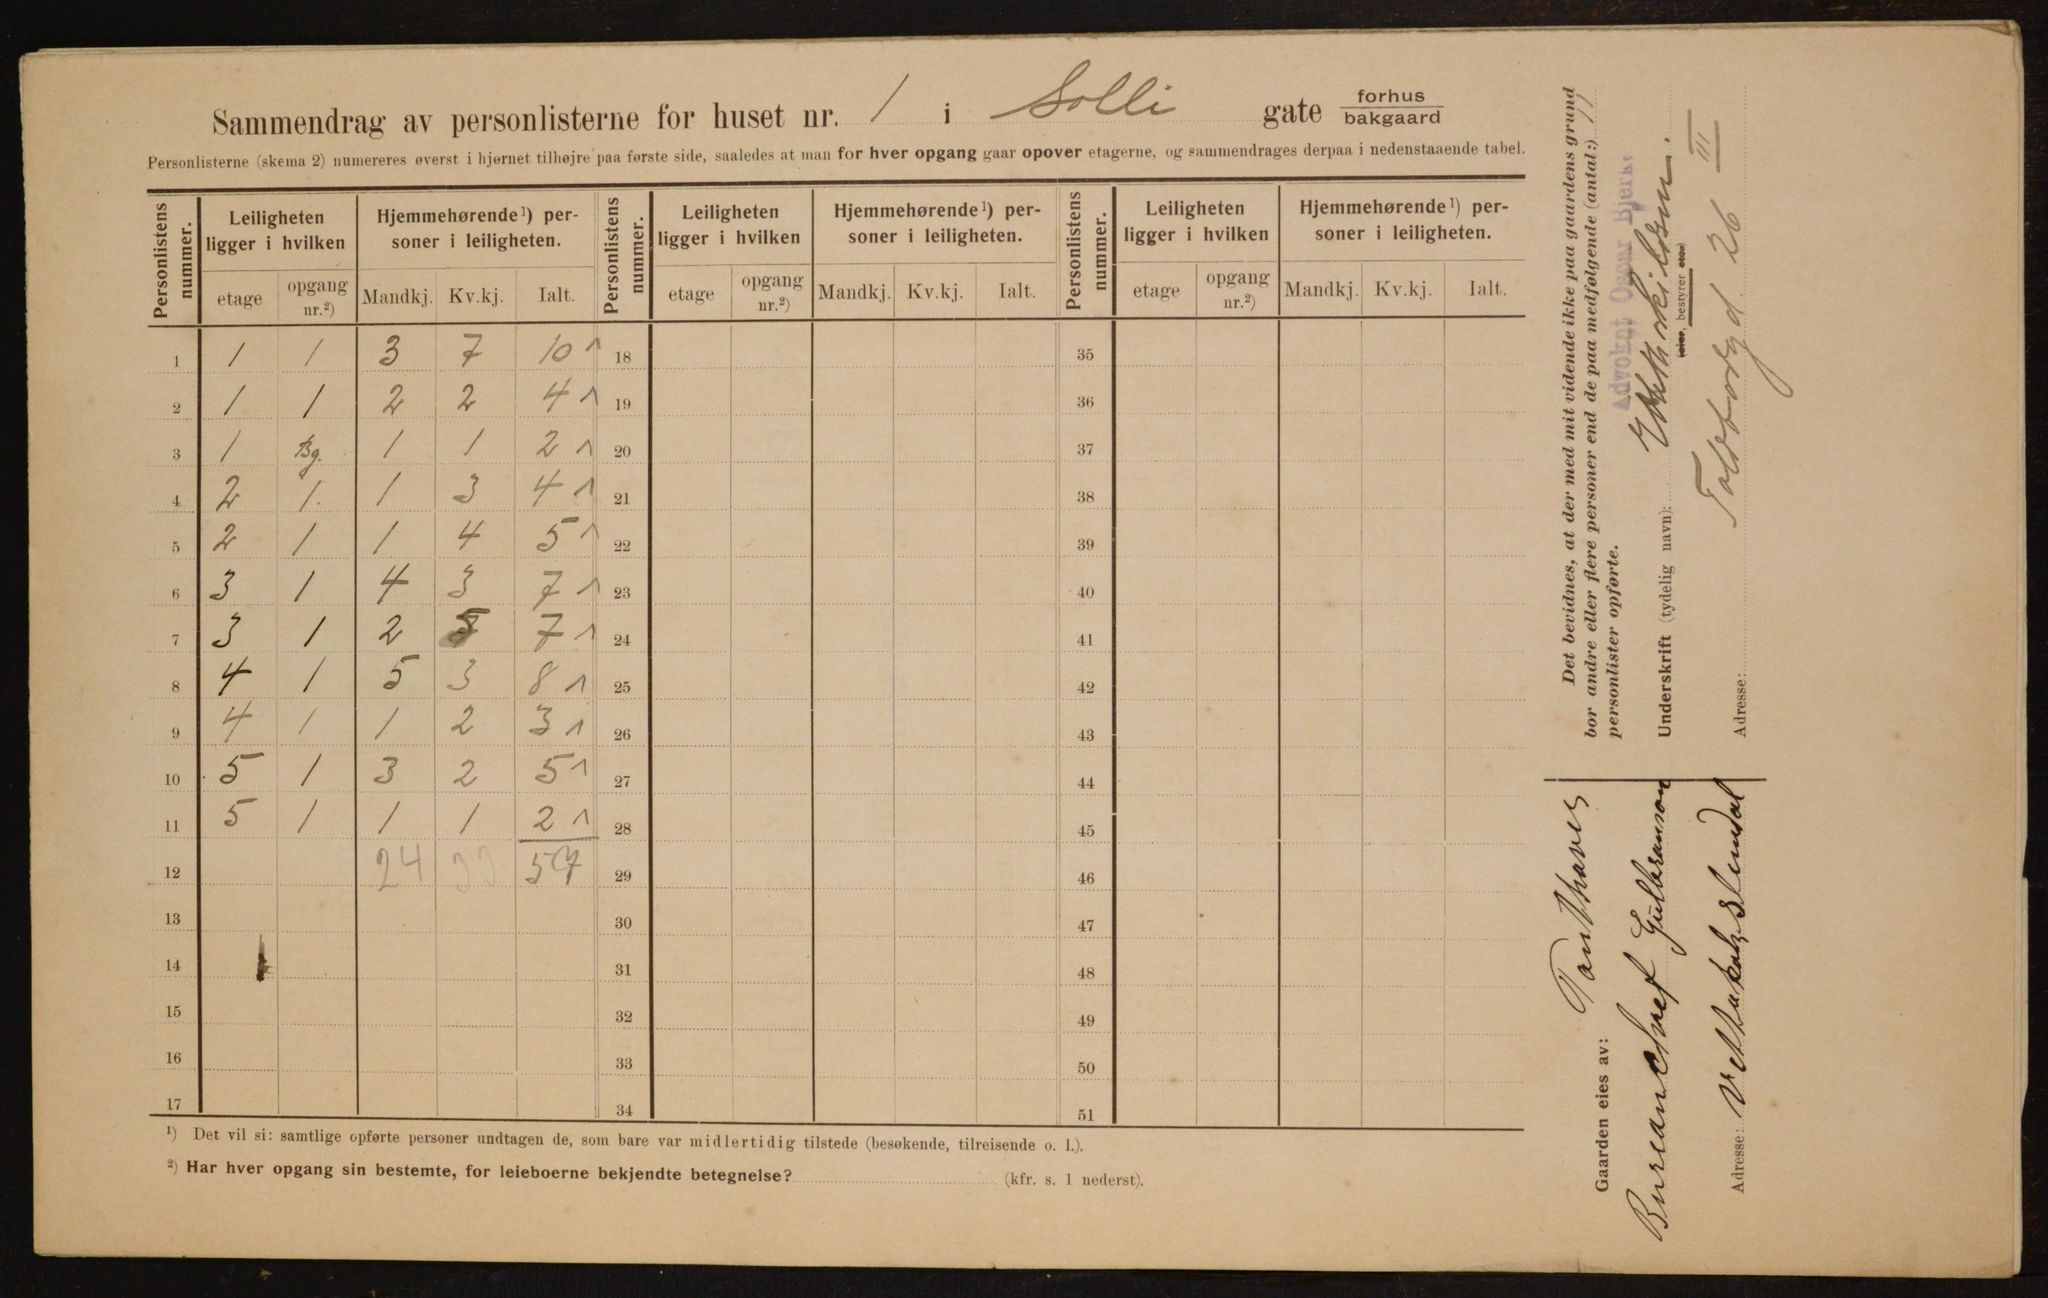 Sammendrag av personlisterne for huset nr. 1 i Solli gate forhus
bakgaard
Personlisterne (skema 2) numereres øverst i hjørnet tilhøjre paa første side, saaledes at man for hver opgang gaar opover etagerne, og sammendrages derpaa i nedenstaaende tabel.
Personlistens nummer. Leiligheten ligger i hvilken Hjemmehørende¹) personer i leiligheten. Personlistens nummer. Leiligheten ligger i hvilken Hjemmehørende¹) personer i leiligheten. Personlistens nummer. Leiligheten ligger i hvilken Hjemmehørende¹) personer i leiligheten.
etage opgang nr.²) Mandkj. Kv.kj. Ialt. etage opgang nr.²) Mandkj. Kv.kj. Ialt. etage opgang nr.²) Mandkj. Kv.kj. Ialt.
1 1 1 3 7 10 1 18 35
2 1 1 2 2 4 1 19 36
3 1 Bg. 1 1 2 1 20 37
4 2 1. 1 3 4 1 21 38
5 2 1 1 4 5 1 22 39
6 3 1 4 3 7 1 23 40
7 3 1 2 5 7 1 24 41
8 4 1 5 3 8 1 25 42
9 4 1 1 2 3 1 26 43
10 5 1 3 2 5 1 27 44
11 5 1 1 1 2 1 28 45
12 24 33 57 29 46
13 30 47
14 31 48
15 32 49
16 33 50
17 34 51
¹) Det vil si: samtlige opførte personer undtagen de, som bare var midlertidig tilstede (besøkende, tilreisende o. l.).
²) Har hver opgang sin bestemte, for leieboerne bekjendte betegnelse? (kfr. s. 1 nederst).
Det bevidnes, at der med mit vidende ikke paa gaardens grund
bor andre eller flere personer end de paa medfølgende (antal:) 11
personlister opførte.
Advokat Oscar Bjerk.
Underskrift (tydelig navn):
eier, bestyrer etc.
Toldbodgd. 26 III
Adresse:
Gaarden eies av:
Bureauchef Gulbranson
Adresse: